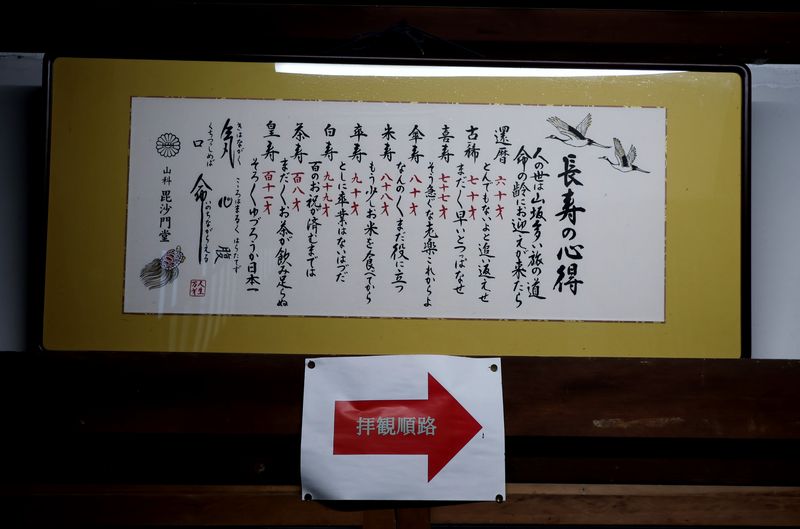 長寿の心得
人の世は山坂多い旅の道
命の齢にお迎えが来たら
還暦 六十才
とんでもないよと追い返えせ
古稀 七十才
まだまだ早いとつっぱなせ
喜寿 七十七才
そう急ぐな老楽これからよ
傘寿 八十才
なんのくまだ役に立つ
米寿 八十八才
もう少しお米を食べてから
卒寿 九十才
としに卒業はないはづだ
白寿 九十九才
百のお祝が済むまでは
茶寿 百八才
まだくお茶が飲み足らぬ
皇寿 百十一才
そろくゆづろうか日本一
気 心 腹
きはながく こころはまるく はらたてず
口 命
くちつつしめば いのちながらえる
山科 毘沙門堂
拝観順路